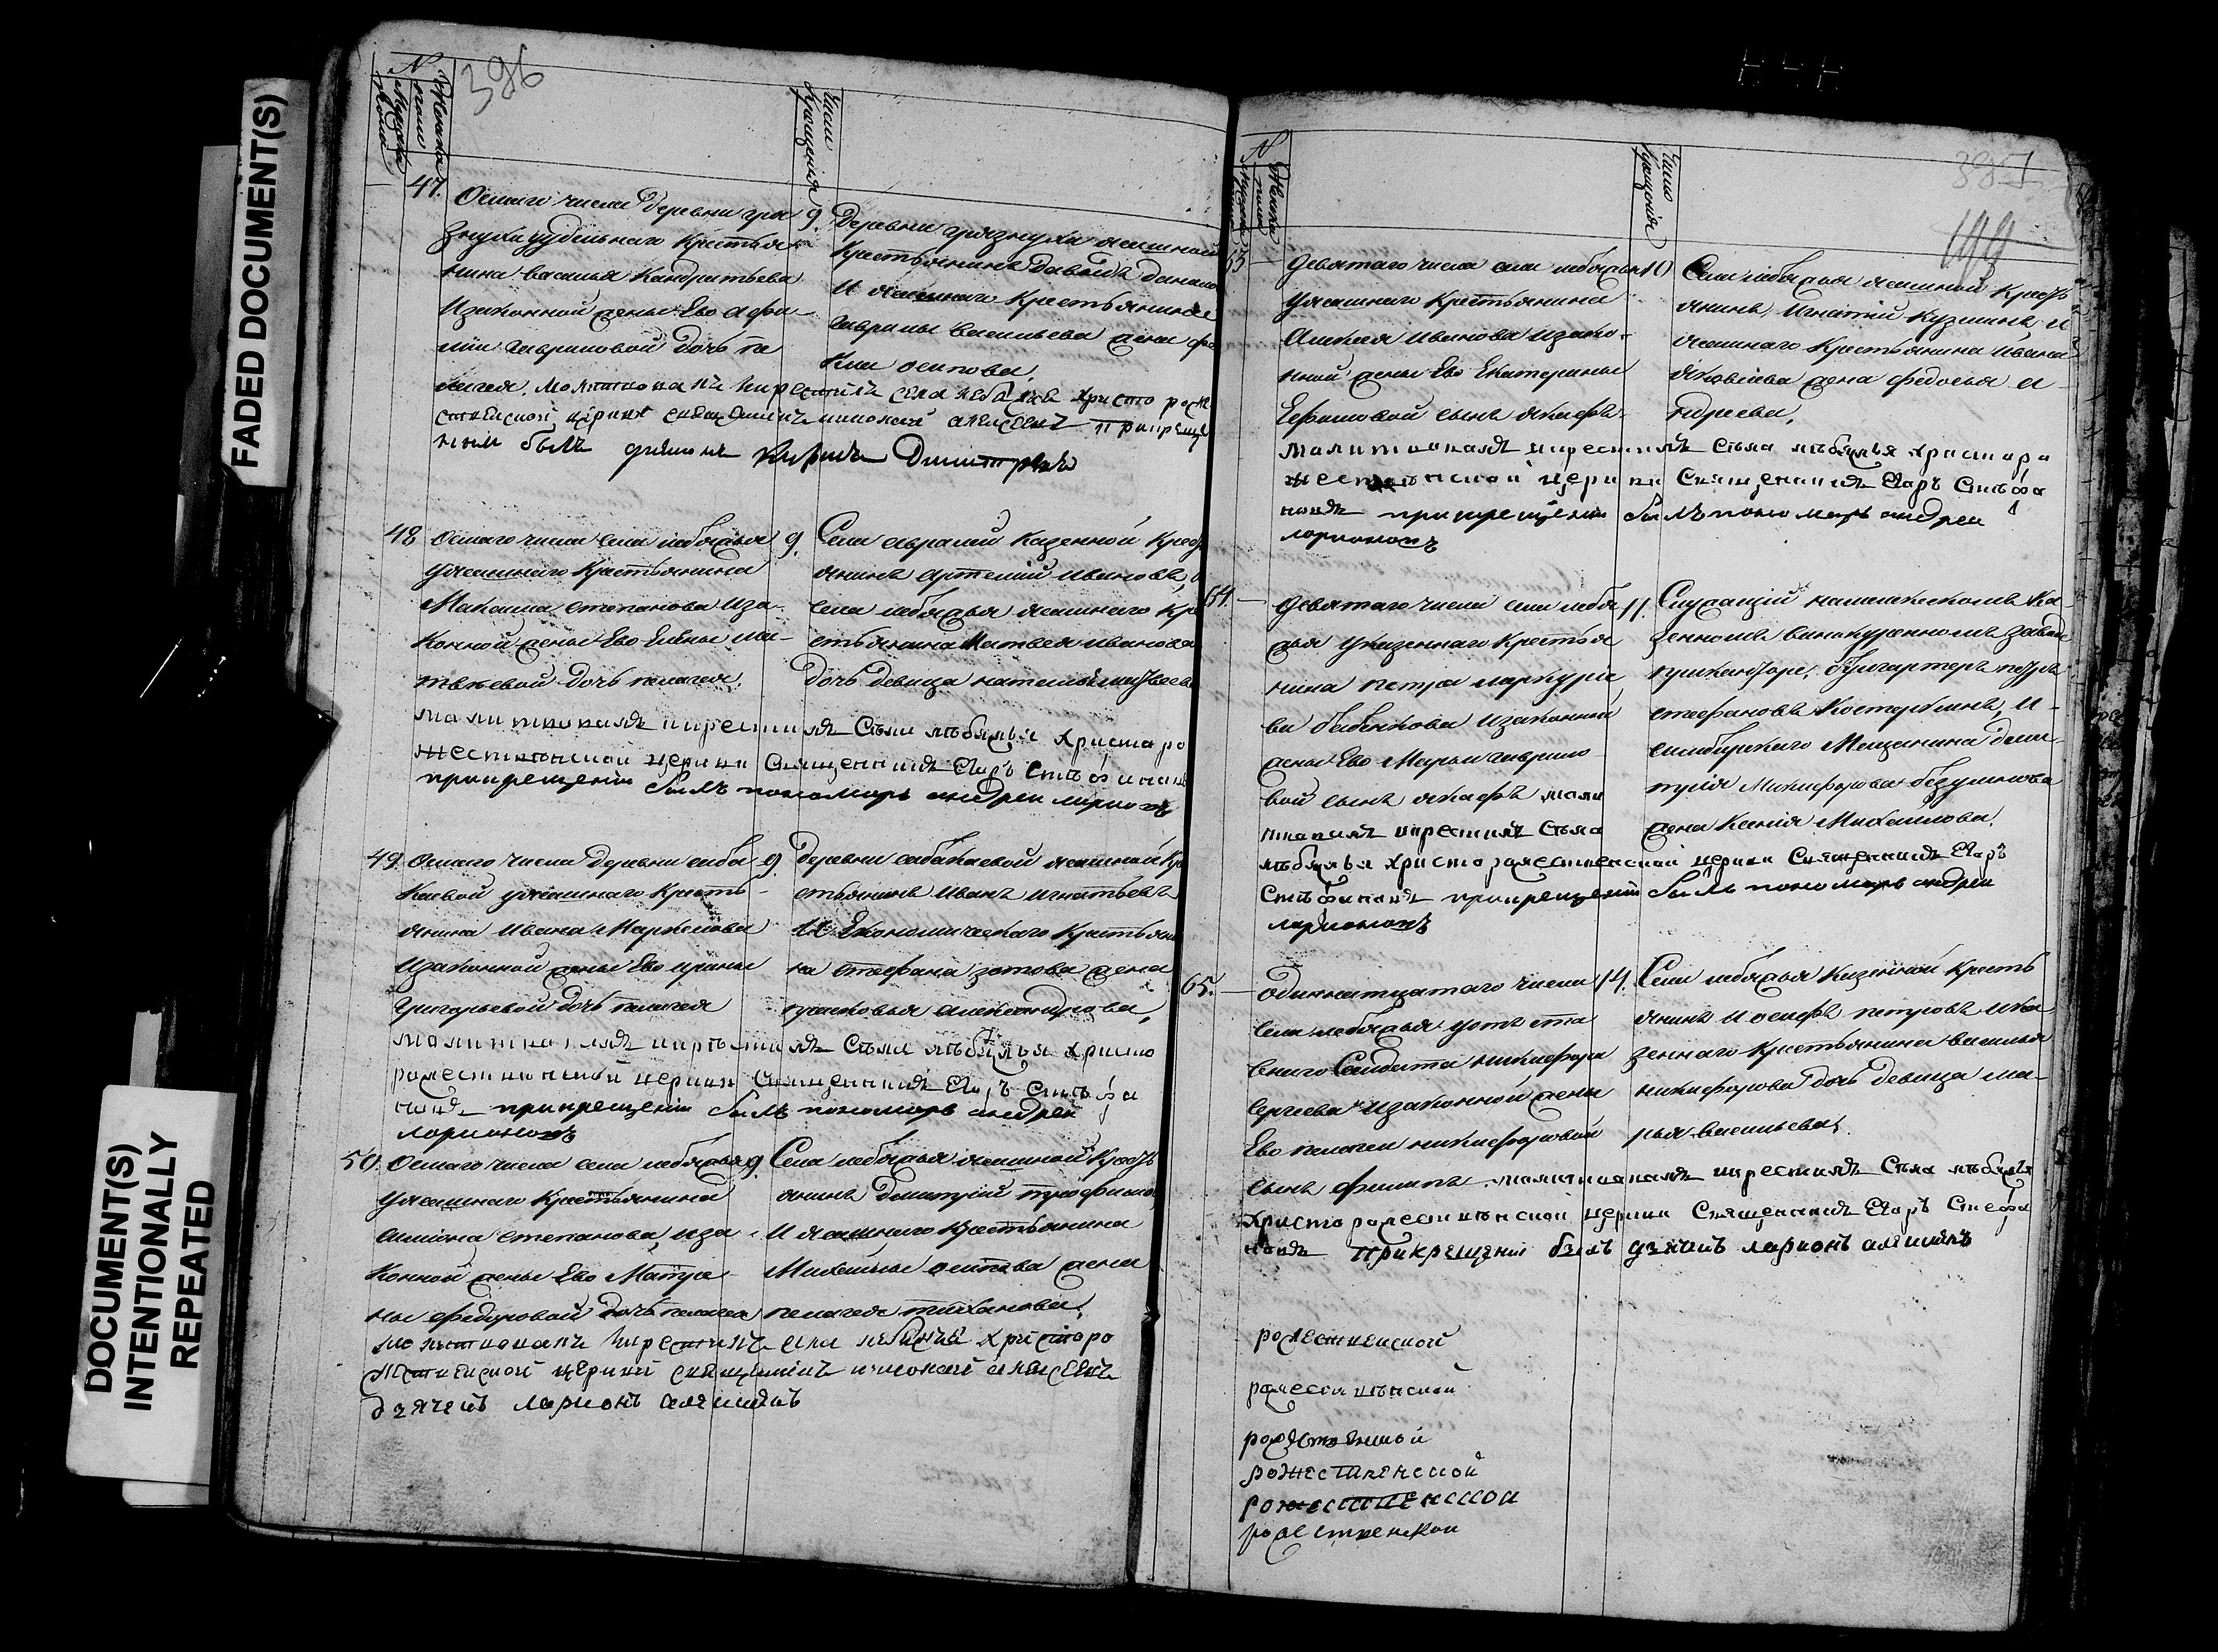 FADED DOCUMENT(S)
DOCUMENT(S)
INTENTIONALLY
REPEATED
386
N
Женска
пола
Мужеска
пола
Число
крещения
47.
Осмаго числа деревни гря
знухи удельнаго крестья
нина василья Кандратьева
Изаконной жены Ево афи
мiи гавриловой дочь пе
лагея. молитвовалъ икрестилъ села лебяжья христо рож
ственской церкви священникъ алексеевъ прикреще
нии былъ дьяконъ Дмитревъ
9.
Деревни грязнухи ясашной
Крестьянинъ Давыдъ
И ясашнаго Крестьянина
гаврилы васильева жена
осипова.
48
Осмаго числа села лебяжья
уясашнаго Крестьянина
Максима степанова иза
Конной жены Ево Елены ма
твеевой дочь пелагея.
молитвовалъ икрестилъ Села лебяжья христаро
жественской церкви Священникъ Егоръ Стефановъ
прикрещении былъ пономарь андреи ларионовъ
9.
Села авралей Казенной Крест
янинъ артемий ивановъ, и
села лебяжья ясашнаго Кре
стьянина Матвея иванова
дочь девица наталья матвеева
49.
Осмаго числа деревни саба
Каевой уясашнаго Кресть
янина Ивана Маркелова
Изаконной жены Ево ирины
григорьевой дочь пелагея
молитвовалъ икрестилъ Села лебяжья христо
рожественской церкви Священникъ Егоръ Стефа
новъ прикрещении былъ пономарь андреи
ларионовъ
9.
Деревни сабакаевой ясашной Кре
стьянинъ Иванъ Игнатьевъ
И Економическаго Крестьяни
на стефана зотова жена
прасковья александрова,
50.
Осмаго числа села лебяжья
уясашнаго Крестьянина
симiона степанова, иза
Конной жены Ево Матре
ны федоровой дочь пелагея
молитвовалъ икрестилъ села лебяжья христоро
жественской церкви священникъ алексеевъ
дьячекъ ларионъ алешинъ
9.
Села лебяжья ясашной Кресть
янинъ Дмитрий трофимов
И ясашнаго Крестьянина
Михайлы осипова жена
пелагея тиханова.
387
N
Женска
пола
Мужеска
Число
Крещения
63
Девятаго числа села лебяжья
уясашнаго Крестьянина
алексея иванова изако
нной жены Ево Екатерины
Ефимовой сынъ иосифъ
малитвовалъ икрестилъ Села лебяжья христоро
жественской церкви Священникъ Егоръ Стефа
новъ прикрещении былъ пономарь андреи
ларионовъ
10
Села лебяжья ясашной Кресть
янинъ Игнатий Кузминъ и
ясашнаго Крестьянина ивана
яковлева жена федосья а
ндреева,
64.
Девятаго числа села лебя
жья указеннаго Крестья
нина петра меркурье
ва изаконной
жены Ево Марьи гаврило
вой сынъ иосифъ мали
твовалъ икрестилъ Села
лебяжья христорожественской церкви Священникъ Егоръ
Стефановъ прикрещении былъ пономарь андреи
ларионовъ
11.
Служащiй Ка
зенномъ винокуренномъ заводе
бухгалтеръ петръ
стефановъ Костеркинъ, и
симбирскаго Мещанина дми
трия Никифорова безумнова
жена Ксения Михайлова.
65.
Одиннатцатаго числа
села лебяжья уотста
внаго Салдата никифора
Сергеева изаконной жены
Ево пелагеи никифоровой
сынъ филипъ. молитвовалъ икрестилъ Села лебяжья
христорожественской церкви Священникъ Егоръ Стефа
новъ прикрещении былъ дьячекъ ларионъ алешинъ
14.
Села лебяжья Казенной Кресть
янинъ иосифъ петровъ ика
зеннаго Крестьянина василья
никифорова дочь девица ма
рья васильева.
рожественской
рожественской
рожественской
рожественской
рожественской
рожественской